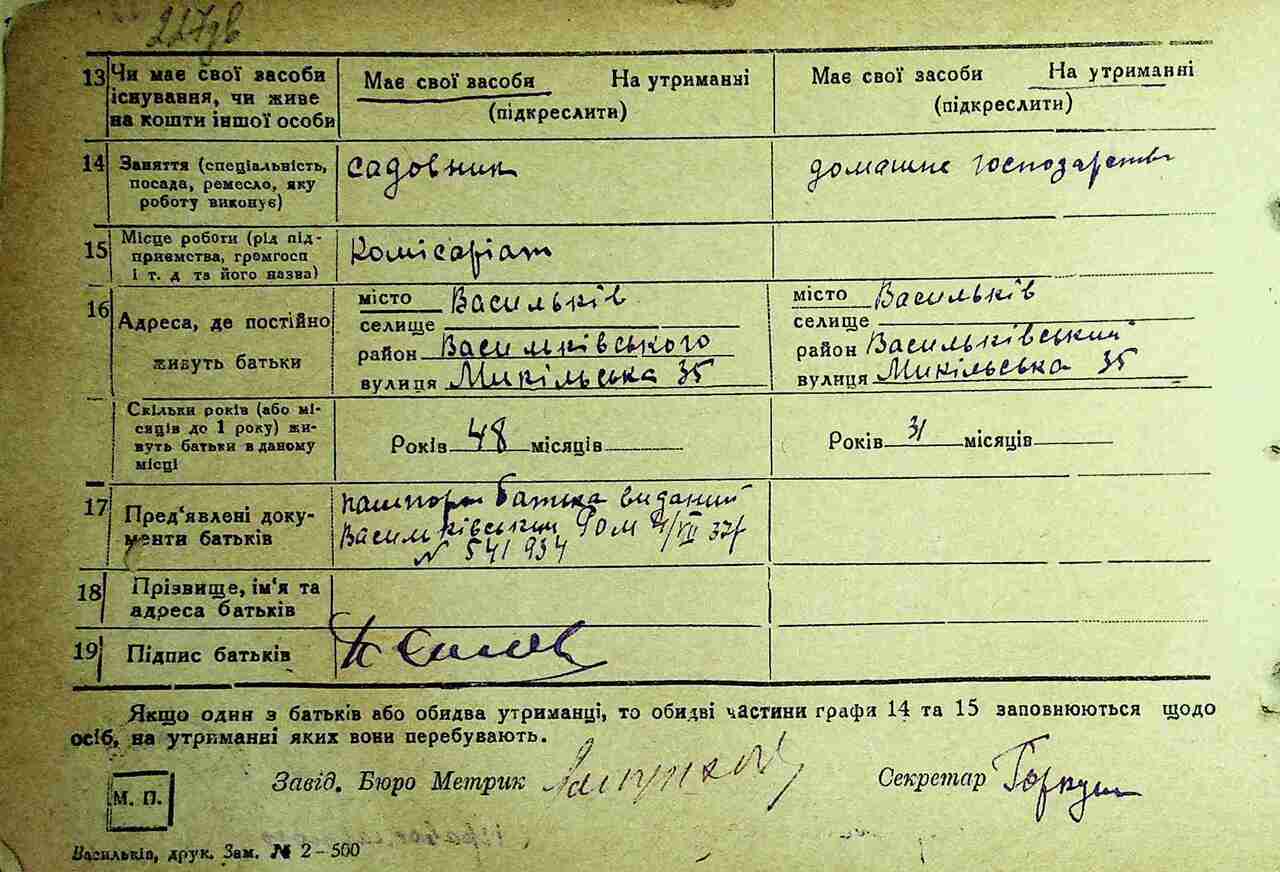 227дв
13 Чи має свої засоби існування, чи живе на кошти іншої особи
Має свої засоби На утриманні
(підкреслити)
Має свої засоби На утриманні
(підкреслити)
14 Заняття (спеціальність, посада, ремесло, яку роботу виконує)
садовник
домашнє господарство
15 Місце роботи (рід підприємства, громгосп і т. д та його назва)
Комісаріат
16 Адреса, де постійно живуть батьки
місто Васильків
селище
район Васильківського
вулиця Микільська 35
місто Васильків
селище
район Васильківський
вулиця Микільська 35
Скільки років (або місяців до 1 року) живуть батьки в даному місці
Років 48 місяців
Років 31 місяців
17 Пред‘явлені документи батьків
паспорт батька виданий
Васильківським РОМ /VII 37р
N 541934
18 Прізвище, ім‘я та адреса батьків
19 Підпис батьків
Якщо один з батьків або обидва утриманці, то обидві частини графи 14 та 15 заповнюються щодо
осіб, на утриманні яких вони перебувають.
Завід. Бюро Метрик
Секретар
М. П.
Васильків, друк. Зам. № 2–500